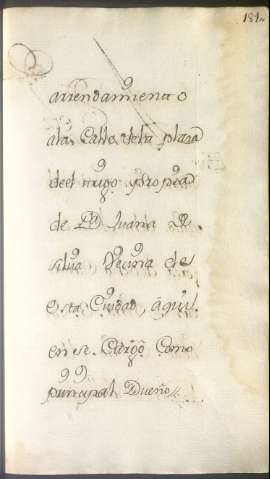 181
arrendamiento
a la Calle de la plaza
del trigo
de Da Juana de
silua, Vecina de
esta Ciudad, aquien
en se Cargo Como
principal Dueño